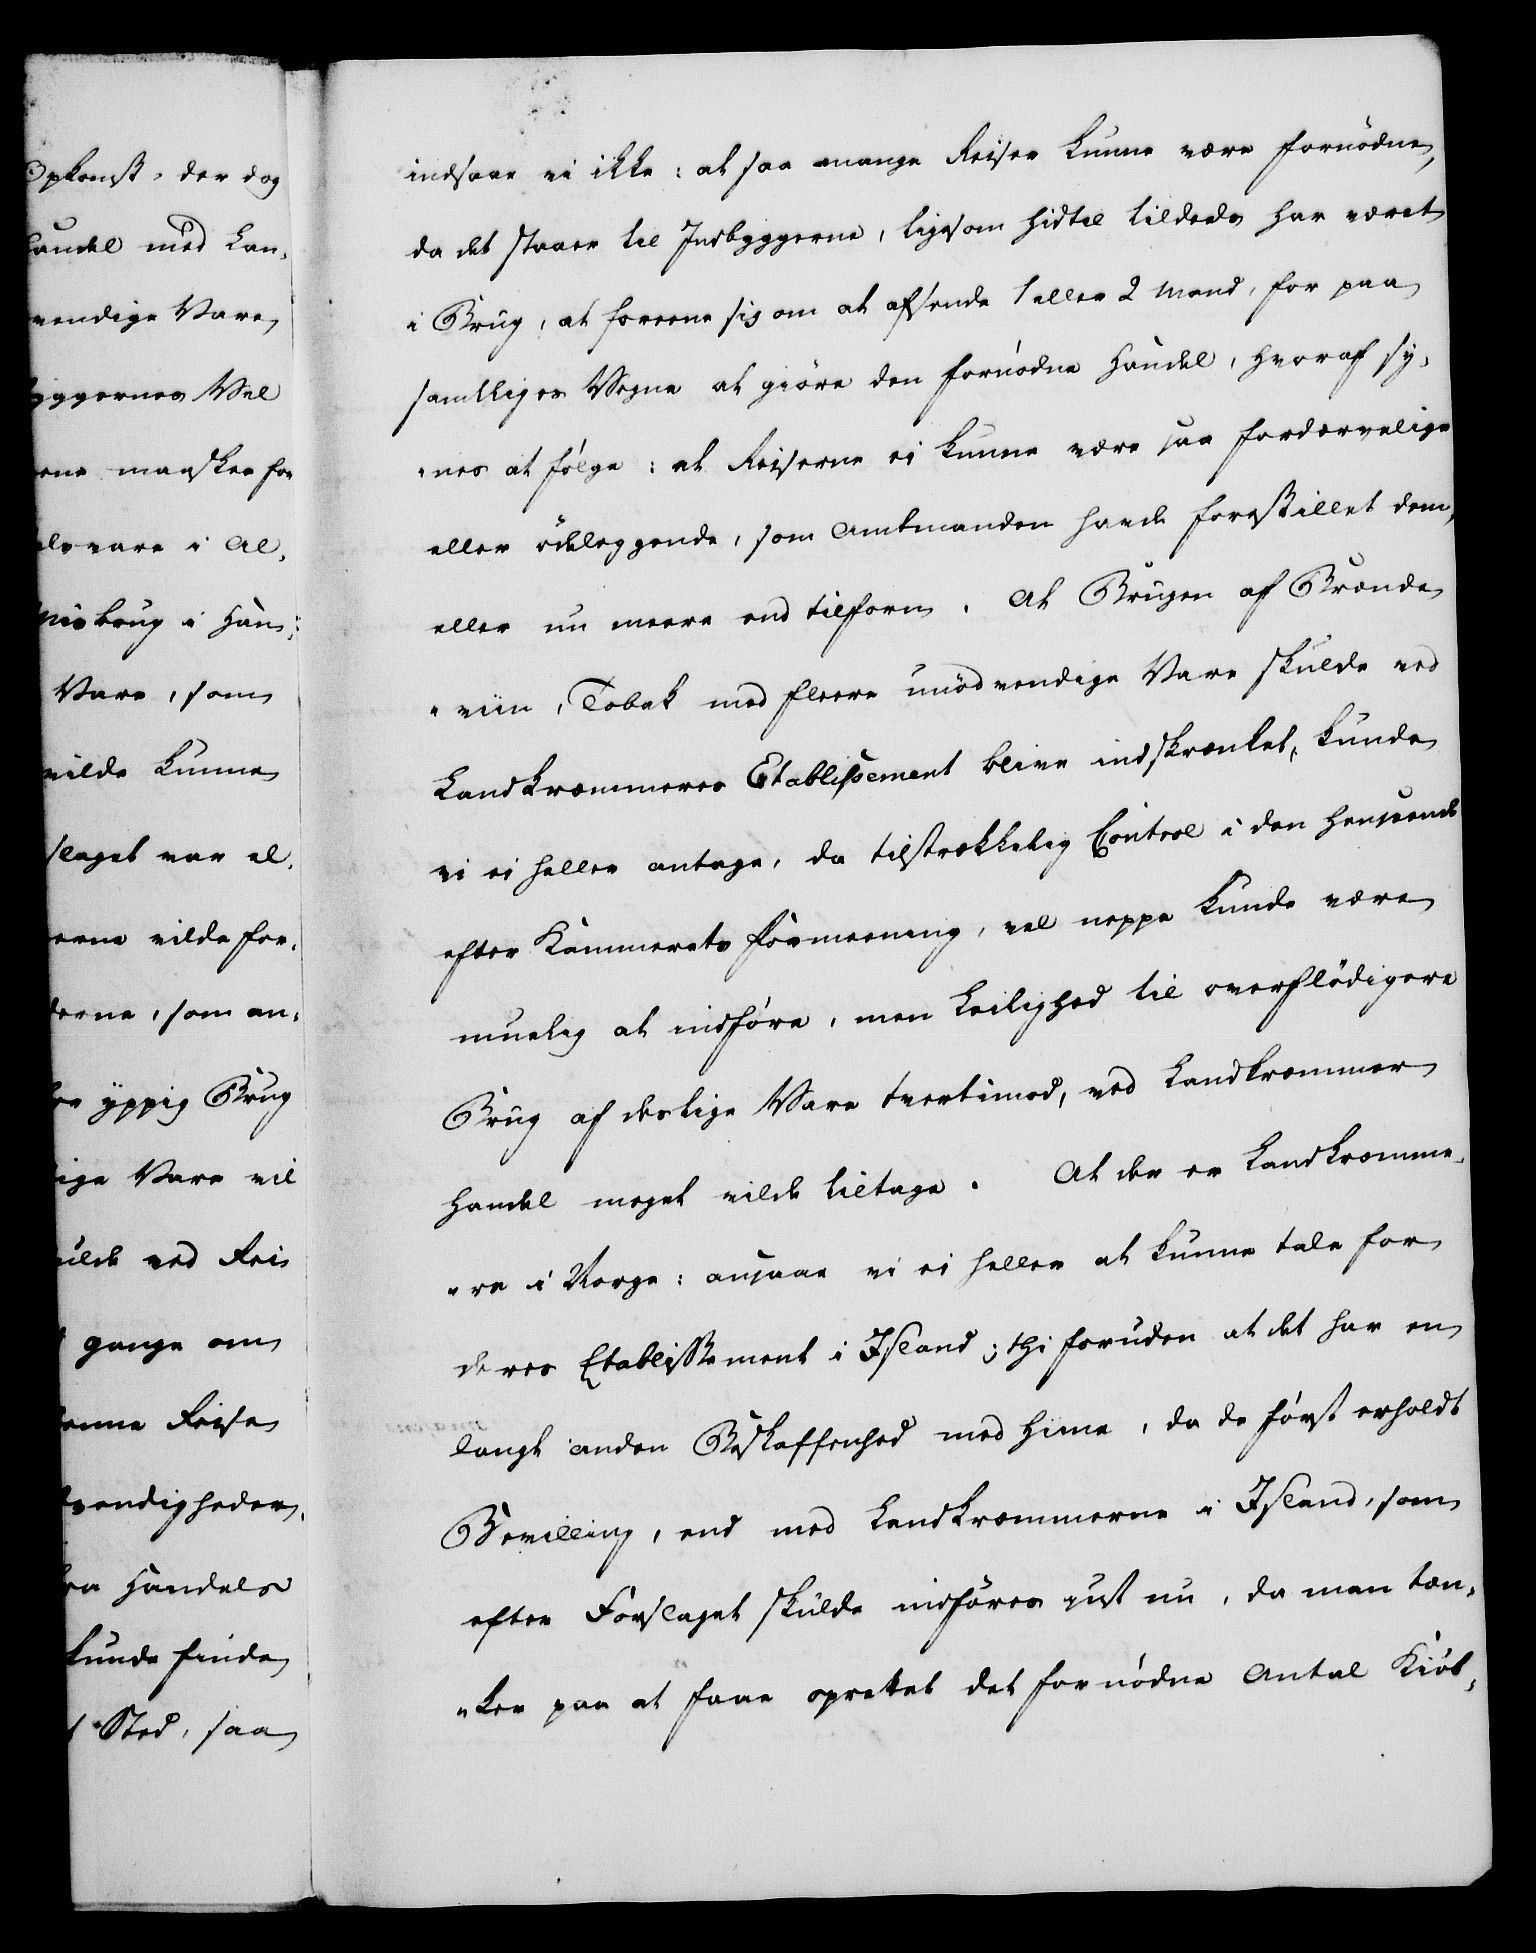 Opkomst, der dog
handel med Lan,
vendige Vare
byggernes Vel
erne maaskee for
elsvare i Al,
Misbrug i Han,
Vare, som
vilde kunne
slaget var al,
erne vilde for,
derne, som an,
yppig Brug
ige Vare vil
ulde ved Rei
gange om
denne Reise
dvendigheder,
Handels
kunde finde
t Sted, saa
indsaae vi ikke: at saa mange Reiser kunne være fornödne,
da det staaer til Indbyggerne, ligesom hidtil tildeels har været
i Brug, at foreene sig om at afsende 1 eller 2 Mand, for paa
samtliges Vegne at giöre den fornödne Handel, hvoraf sy,
„nes at fölge: at Reiserne ei kunne være saa fordærvelige
eller ödeleggende, som Amtmanden havde forestillet dem,
eller nu meere end tilforn. At Brugen af Brænde
„viin, Tobak med fleere unödvendige Vare skulde ved
Landkræmmeres Etablissement blive indskrænket, kunde
vi ei heller antage, da tilstrækkelig Control i den Henseende
efter Kammerets Formeening, vel neppe kunde være
muelig at indföre, men Leilighed til overflödigere
Brug af deslige Vare tvertimod, ved Landkræmmer
Handel meget vilde tiltage. At der er Landkræmme,
„re i Norge: ansaae vi ei heller at kunne tale for
deres Etablissement i Island; thi foruden at det har en
langt anden Beskaffenhed med hine, da de först erholdt
Bevilling, end med Landkræmmerne i Island, som
efter Forslaget skulde indföres just nu, da man tæn,
„ker paa at faae oprettet det fornödne Antal Kiöb,